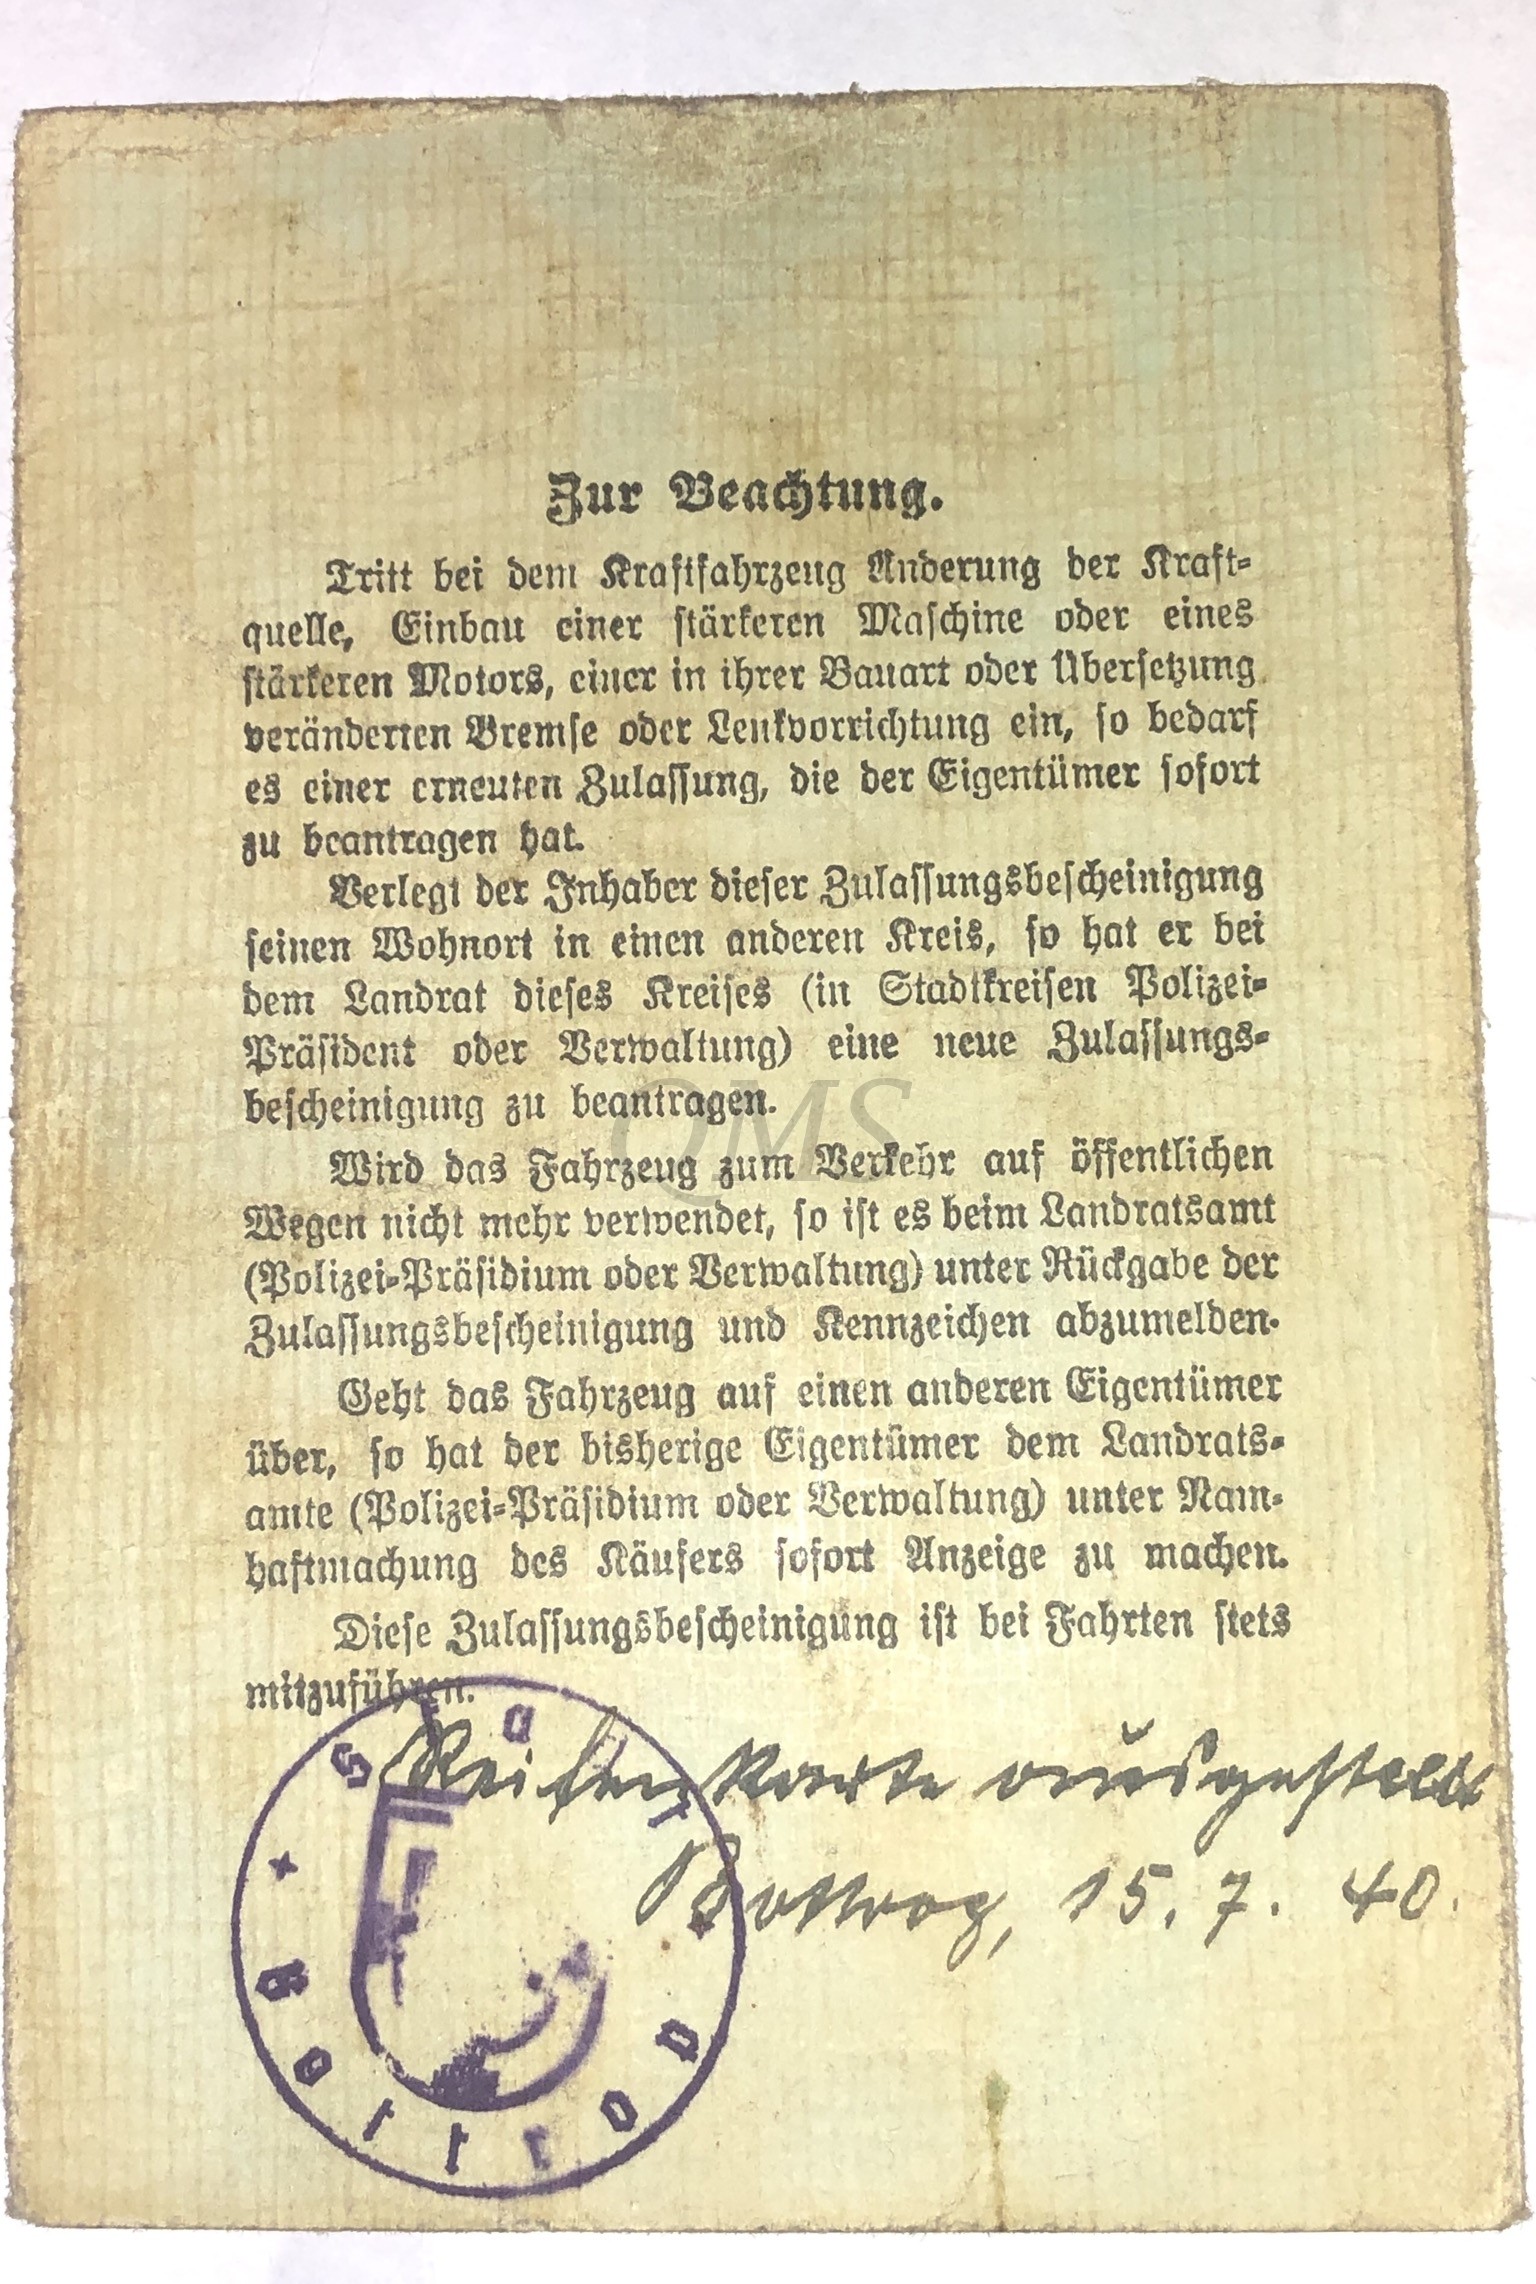 Zur Beachtung.
Tritt bei dem Kraftfahrzeug Änderung der Kraft-
quelle, Einbau einer stärkeren Maschine oder eines
stärkeren Motors, einer in ihrer Bauart oder Übersetzung
veränderten Bremse oder Lenkvorrichtung ein, so bedarf
es einer erneuten Zulassung, die der Eigentümer sofort
zu beantragen hat.
Verlegt der Inhaber dieser Zulassungsbescheinigung
seinen Wohnort in einen anderen Kreis, so hat er bei
dem Landrat dieses Kreises (in Stadtkreisen Polizei-
Präsident oder Verwaltung) eine neue Zulassungs-
bescheinigung zu beantragen.
QMS
Wird das Fahrzeug zum Verkehr auf öffentlichen
Wegen nicht mehr verwendet, so ist es beim Landratsamt
(Polizei-Präsidium oder Verwaltung) unter Rückgabe der
Zulassungsbescheinigung und Kennzeichen abzumelden.
Geht das Fahrzeug auf einen anderen Eigentümer
über, so hat der bisherige Eigentümer dem Landrats-
amte (Polizei-Präsidium oder Verwaltung) unter Nam-
haftmachung des Käufers sofort Anzeige zu machen.
Diese Zulassungsbescheinigung ist bei Fahrten stets
mitzuführen.
Reifenkarte ausgestellt
Bottrop, 15. 7. 40.